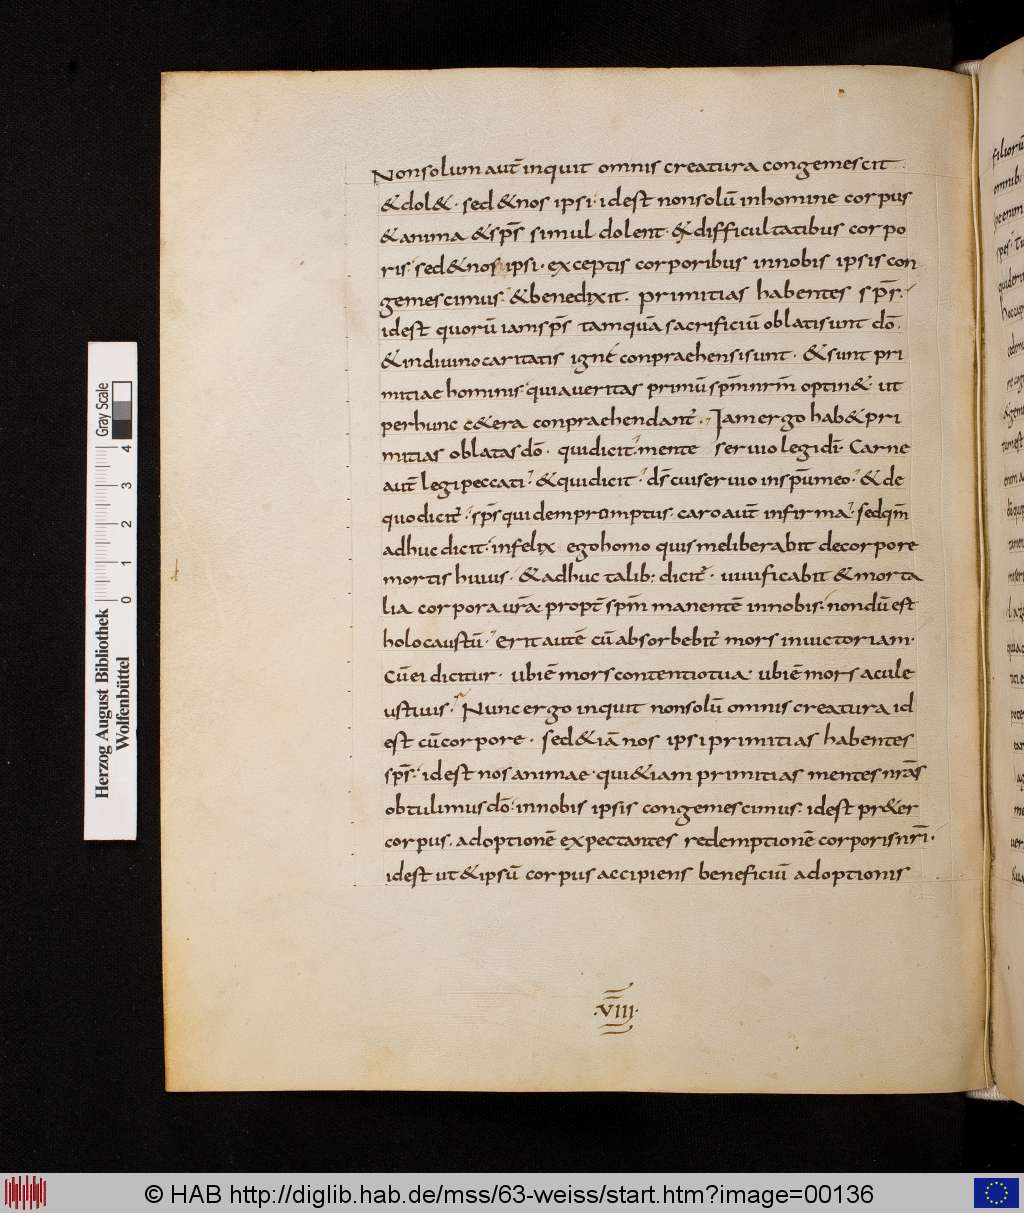 Non solum aut̄ inquit omnis creatura congemescit
& dol&· sed & nos ipsi· id est non solū in homine corpus
& anima & sp̄s simul dolent· & difficultatibus corpo
ris· sed & nos ipsi· exceptis corporibus in nobis ipsis con
gemescimus· & benedixit. primitias habentes sp̄s·
id est quorū iam sp̄s tamquā sacrificiū oblati sunt dō·
& in diuino caritatis igne conpraehensi sunt· & sunt pri
mitiae hominis· quia ueritas primū sp̄m nr̄m optin& ut
per hunc c&era conpraehendant᷑· Iam ergo hab& pri
mitias oblatas dō· qui dicit· mente seruio legi dī· Carne
aut̄ legi peccati· & qui dicit· ds̄ cui seruio in sp̄u meo· & de
quo dicit᷑· sp̄s quidem promptus· caro aut̄ infirma· sed qm̄
adhuc dicit· infelix ego homo quis me liberabit de corpore
mortis huius· & adhuc talib; dicit᷑· uiuificabit & morta
lia corpora ur̄a propt̄ sp̄m manentē in nobis· nondū est
holocaustū· Erit autē cū absorbebit᷑ mors in uictoriam·
Cū ei dicitur· ubi ē mors contentio tua· ubi ē mors acule
us tuus· Nunc ergo inquit non solū omnis creatura id
est cū corpore· sed & iā nos ipsi primitias habentes
sp̄s· id est nos animae· qui &iam primitias mentes nr̄as
obtulimus dō· in nobis ipsis congemescimus· id est pr&er
corpus· adoptionē expectantes redemptionē corporis nr̄i·
id est ut & ipsū corpus accipiens beneficiū adoptionis
·VIII·
Herzog August Bibliothek
Wolfenbüttel
0 1 2 3 4
Gray Scale
© HAB http://diglib.hab.de/mss/63-weiss/start.htm?image=00136